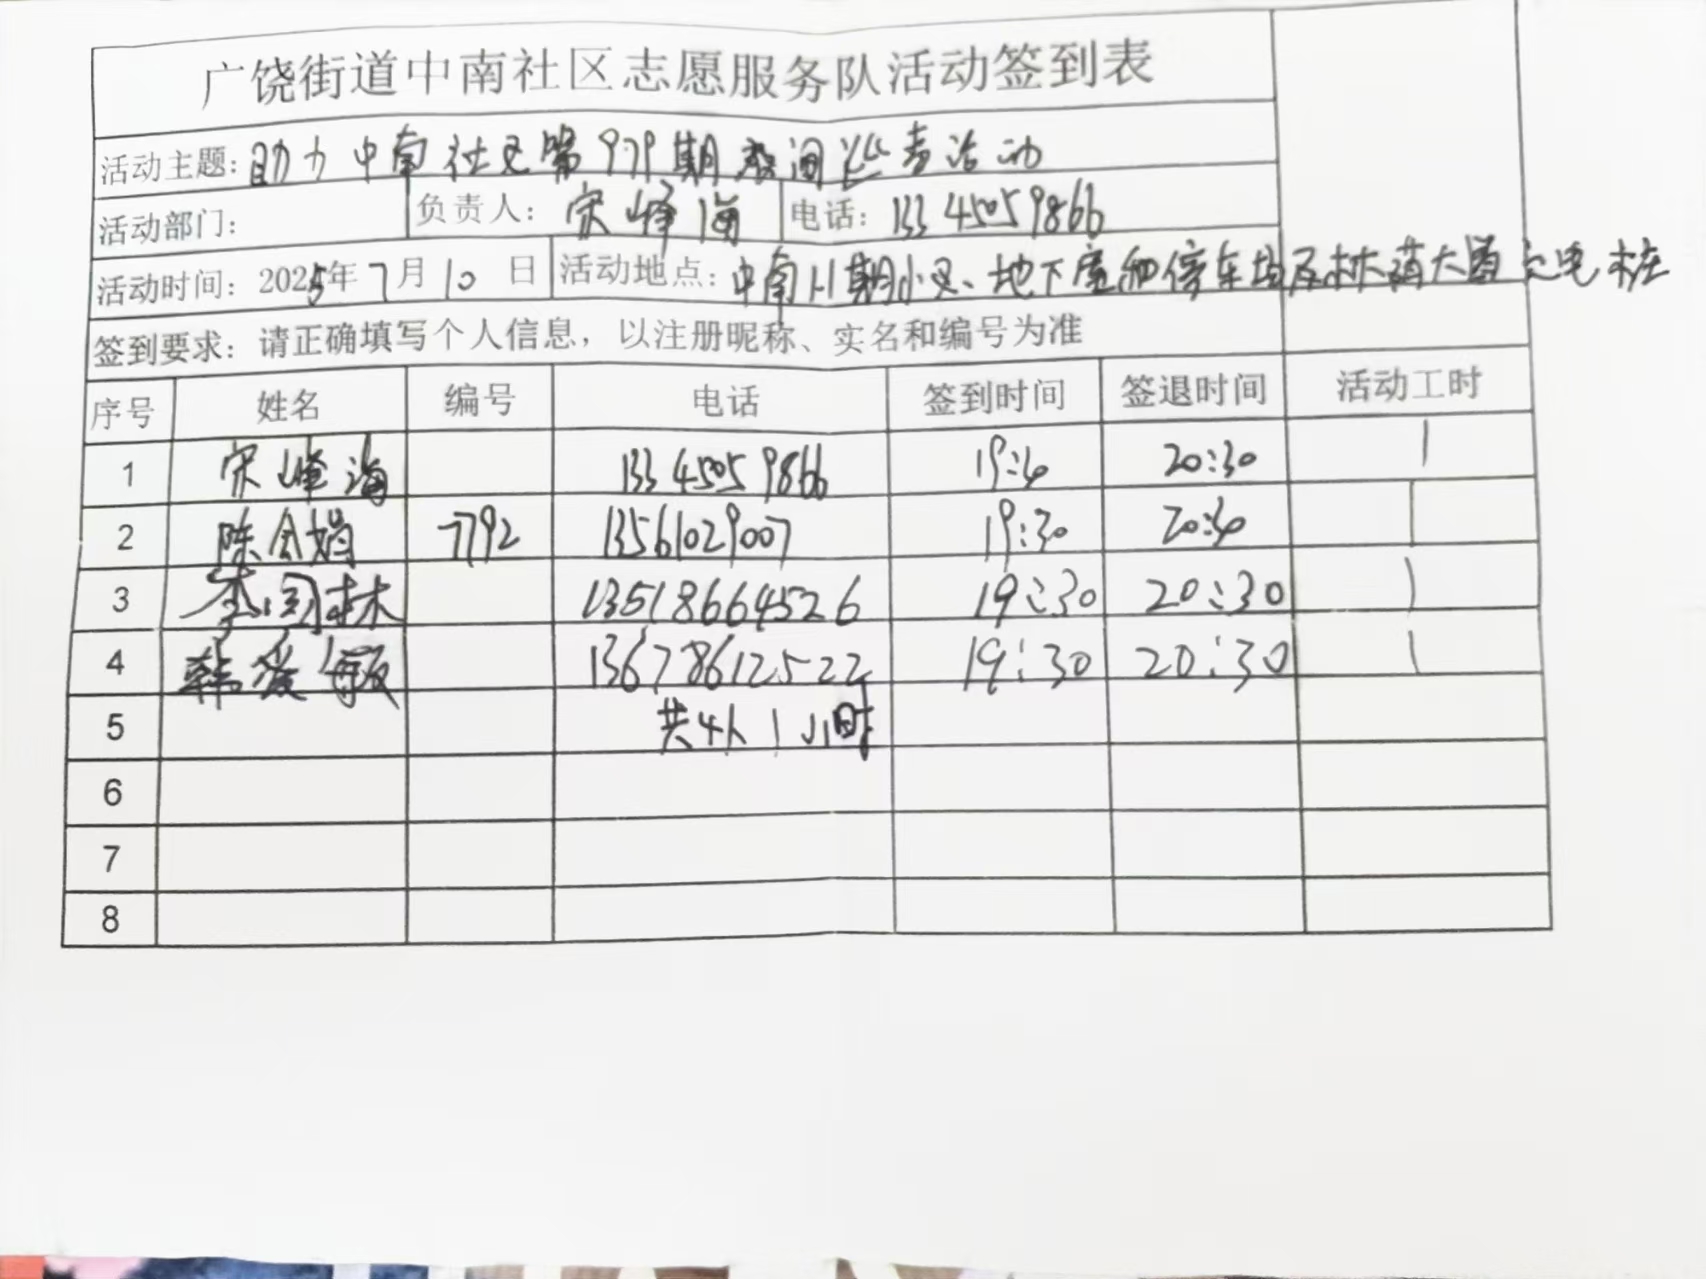 广饶街道中南社区志愿服务队活动签到表
活动主题：助力中南社区第979期夜间巡查活动
活动部门： 负责人：宋峰海 电话：13345059866
活动时间：2025年7月10日 活动地点：中南 期小区、地下室和停车场及 大道充电桩
签到要求：请正确填写个人信息，以注册昵称、实名和编号为准
序号 姓名 编号 电话 签到时间 签退时间 活动工时
1 宋峰海 13345059866 19:30 20:30 1
2 陈会娟 7792 13561029007 19:30 20:30 1
3 李国林 13518664526 19:30 20:30 1
4 韩爱敏 13678612522 19:30 20:30 1
5 共4人1小时
6
7
8